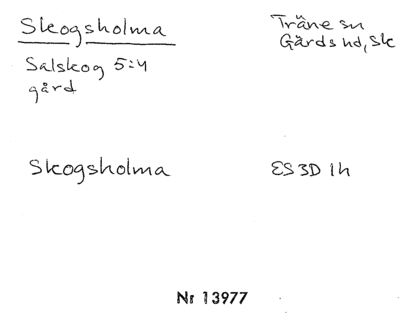 Skogsholma
Träne sn
Gärds hd, Sk
Salskog 5:4
gård
Skogsholma
ES 3D 1h
Nr 13977